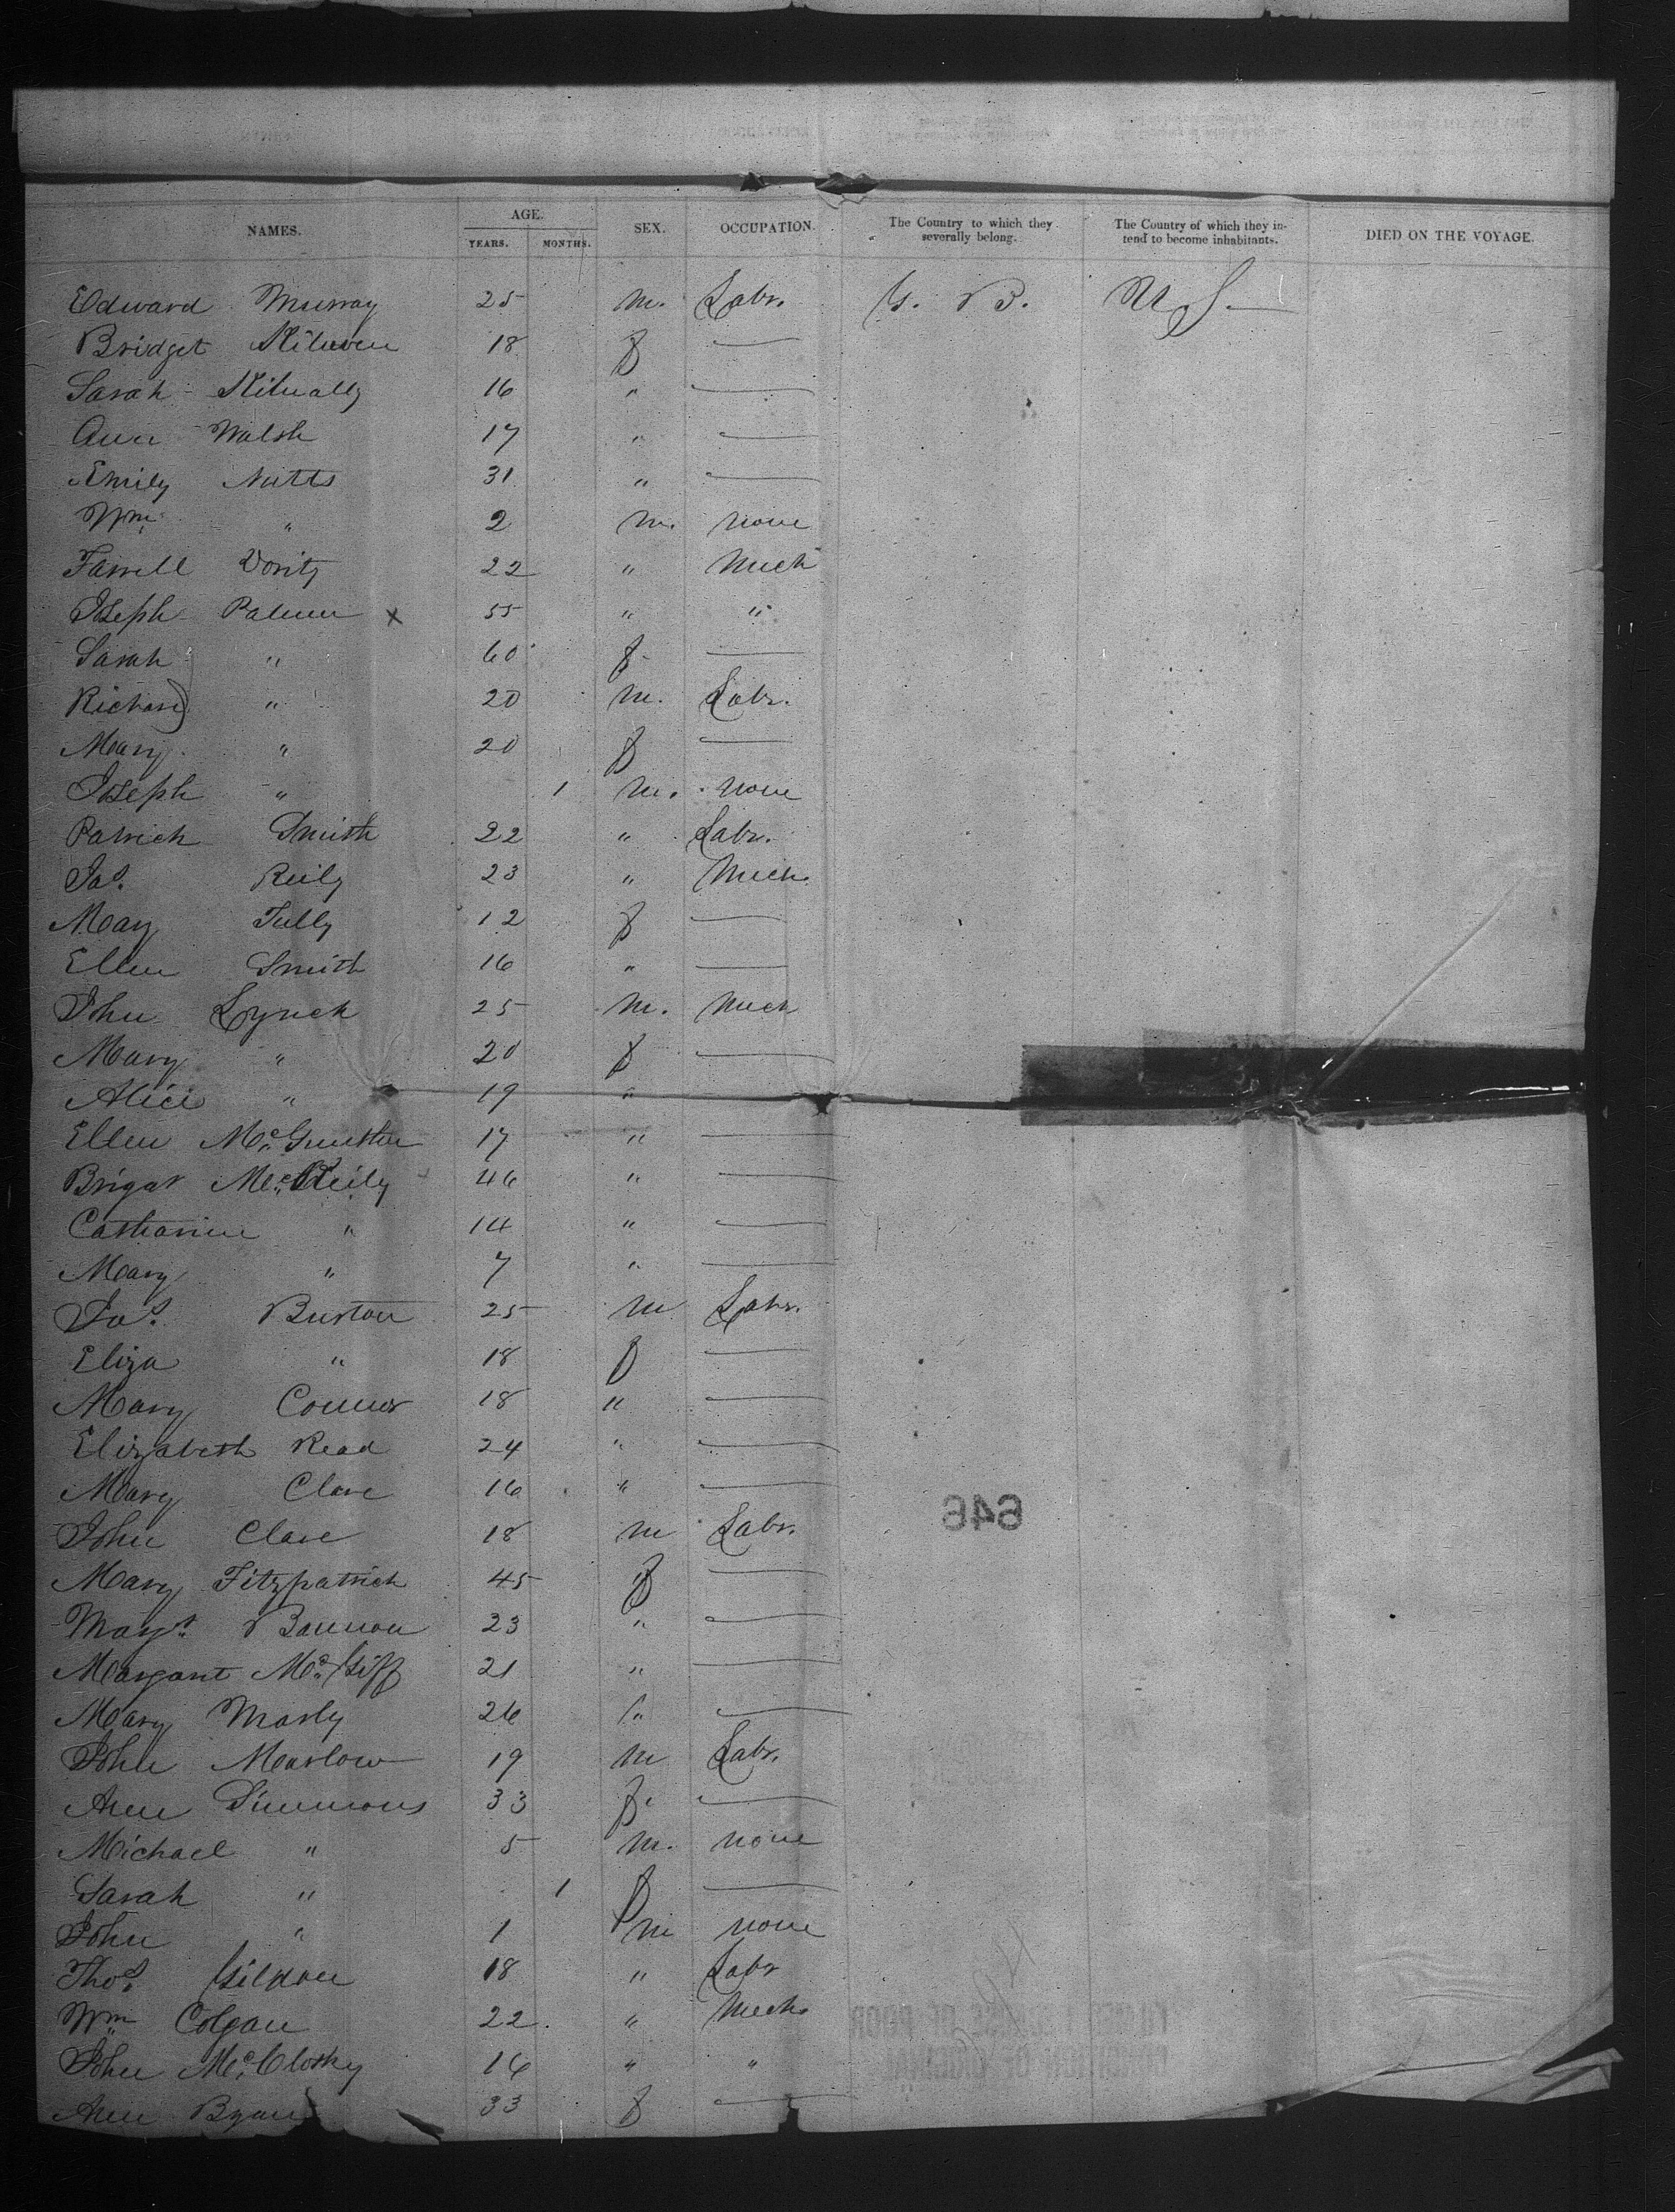 NAMES. AGE. YEARS. MONTHS. SEX. OCCUPATION. The Country to which they severally belong. The Country of which they intend to become inhabitants. DIED ON THE VOYAGE.
Edward Murray 25 m. Labr. G. B. U S
Bridget 18 f —
Sarah 16 " —
Ann Walsh 17 " —
Emily Nutts 31 " —
Wm " 2 m. none
Farrell 22 " Mech
Joseph Palmer x 55 " "
Sarah " 60 f —
Richard " 20 m. Labr.
Mary " 20 f —
Joseph " 1 m. none
Patrick Smith 22 " Labr.
Jas. Reily 23 " Mech.
Mary Tully 12 f —
Ellen Smith 16 " —
John Lynch 25 m. Mech
Mary " 20 f —
Alice " 19 "
Ellen 17 " —
Brigat McReily 46 " —
Catharine " 14 " —
Mary " 7 " —
Jas. Burton 25 m Labr.
Eliza " 18 f —
Mary Conner 18 " —
Elizabeth Read 24 " —
Mary Clare 16 " —
646
John Clare 18 m Labr.
Mary Fitzpatrick 45 f —
Magt. Bannon 23 " —
Margaret McGiff 21 " —
Mary Marly 26 " —
John Marlow 19 m Labr.
Ann Simmons 33 f. —
Michael " 5 m. none
Sarah " 1 f —
John " 1 m none
Thos. 18 " Labr
Wm Colgan 22. " Mech.
John McClosky 16 " "
Ann 33 f —